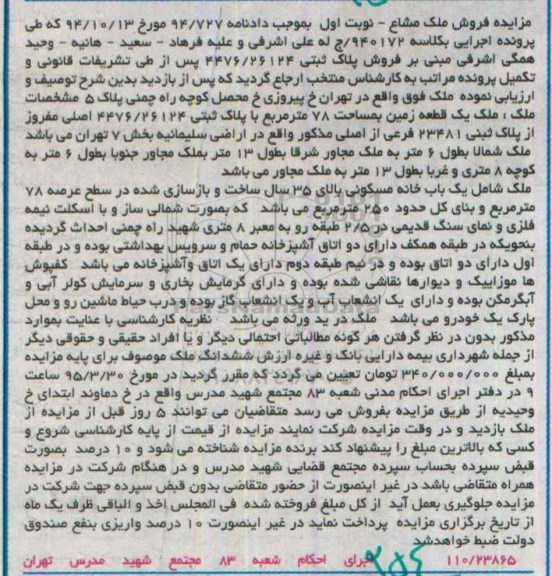 مزایده فروش ملک مشاع - نوبت اول بموجب دادنامه ۹۴/۷۲۷ مورخ ۹۴/۱۰/۱۳ که طی
پرونده اجرایی بکلاسه ۹۴۰۱۷۲/ج له علی اشرفی و علیه فرهاد - سعید - هانیه - وحید
همگی اشرفی مبنی بر فروش پلاک ثبتی ۴۴۷۶/۲۶۱۲۴ پس از طی تشریفات قانونی و
تکمیل پرونده مراتب به کارشناس منتخب ارجاع گردید که پس از بازدید بدین شرح توصیف و
ارزیابی نموده ملک فوق واقع در تهران خ پیروزی خ محصل کوچه راه چمنی پلاک ۵ مشخصات
ملک : ملک یک قطعه زمین بمساحت ۷۸ مترمربع با پلاک ثبتی ۴۴۷۶/۲۶۱۲۴ اصلی مفروز
از پلاک ثبتی ۲۳۴۸۱ فرعی از اصلی مذکور واقع در اراضی سلیمانیه بخش ۷ تهران می باشد
ملک شمالا بطول ۶ متر به ملک مجاور شرقا بطول ۱۳ متر بملک مجاور جنوبا بطول ۶ متر به
کوچه ۸ متری و غربا بطول ۱۳ متر به ملک مجاور می باشد
ملک شامل یک باب خانه مسکونی بالای ۳۵ سال ساخت و بازسازی شده در سطح عرصه ۷۸
مترمربع و بنای کل حدود ۲۵۰ مترمربع می باشد که بصورت شمالی ساز و با اسکلت نیمه
فلزی و نمای سنگ قدیمی در ۲/۵ طبقه رو به معبر ۸ متری شهید راه چمنی احداث گردیده
بنحویکه در طبقه همکف دارای دو اتاق آشپزخانه حمام و سرویس بهداشتی بوده و در طبقه
اول دارای دو اتاق بوده و در نیم طبقه دوم دارای یک اتاق وآشپزخانه می باشد کفپوش
ها موزاییک و دیوارها نقاشی شده بوده و دارای گرمایش بخاری و سرمایش کولر آبی و
آبگرمکن بوده و دارای یک انشعاب آب و یک انشعاب گاز بوده و درب حیاط ماشین رو و محل
پارک یک خودرو می باشد ملک در ید ورثه می باشد نظریه کارشناسی با عنایت بموارد
مذکور بدون در نظر گرفتن هر گونه مطالباتی احتمالی دیگر و یا افراد حقیقی و حقوقی دیگر
از جمله شهرداری بیمه دارایی بانک و غیره ارزش ششدانگ ملک موصوف برای پایه مزایده
بمبلغ ۳۴۰/۰۰۰/۰۰۰ تومان تعیین می گردد که مقرر گردید در مورخ ۹۵/۳/۳۰ ساعت
۹ در دفتر اجرای احکام مدنی شعبه ۸۳ مجتمع شهید مدرس واقع در خ دماوند ابتدای خ
وحیدیه از طریق مزایده بفروش می رسد متقاضیان می توانند ۵ روز قبل از مزایده از
ملک بازدید و در وقت مزایده شرکت نمایند مزایده از قیمت از پایه کارشناسی شروع و
کسی که بالاترین مبلغ را پیشنهاد کند برنده مزایده شناخته می شود و ۱۰ درصد بصورت
قبض سپرده بحساب سپرده مجتمع قضایی شهید مدرس و در هنگام شرکت در مزایده
همراه متقاضی باشد در غیر اینصورت از حضور متقاضی بدون قبض سپرده جهت شرکت در
مزایده جلوگیری بعمل آید از کل مبلغ فروخته شده فی المجلس اخذ و الباقی ظرف یک ماه
از تاریخ برگزاری مزایده پرداخت نماید در غیر اینصورت ۱۰ درصد واریزی بنفع صندوق
دولت ضبط خواهدشد
۱۱۰/۲۳۸۶۵ اجرای احکام شعبه ۸۳ مجتمع شهید مدرس تهران